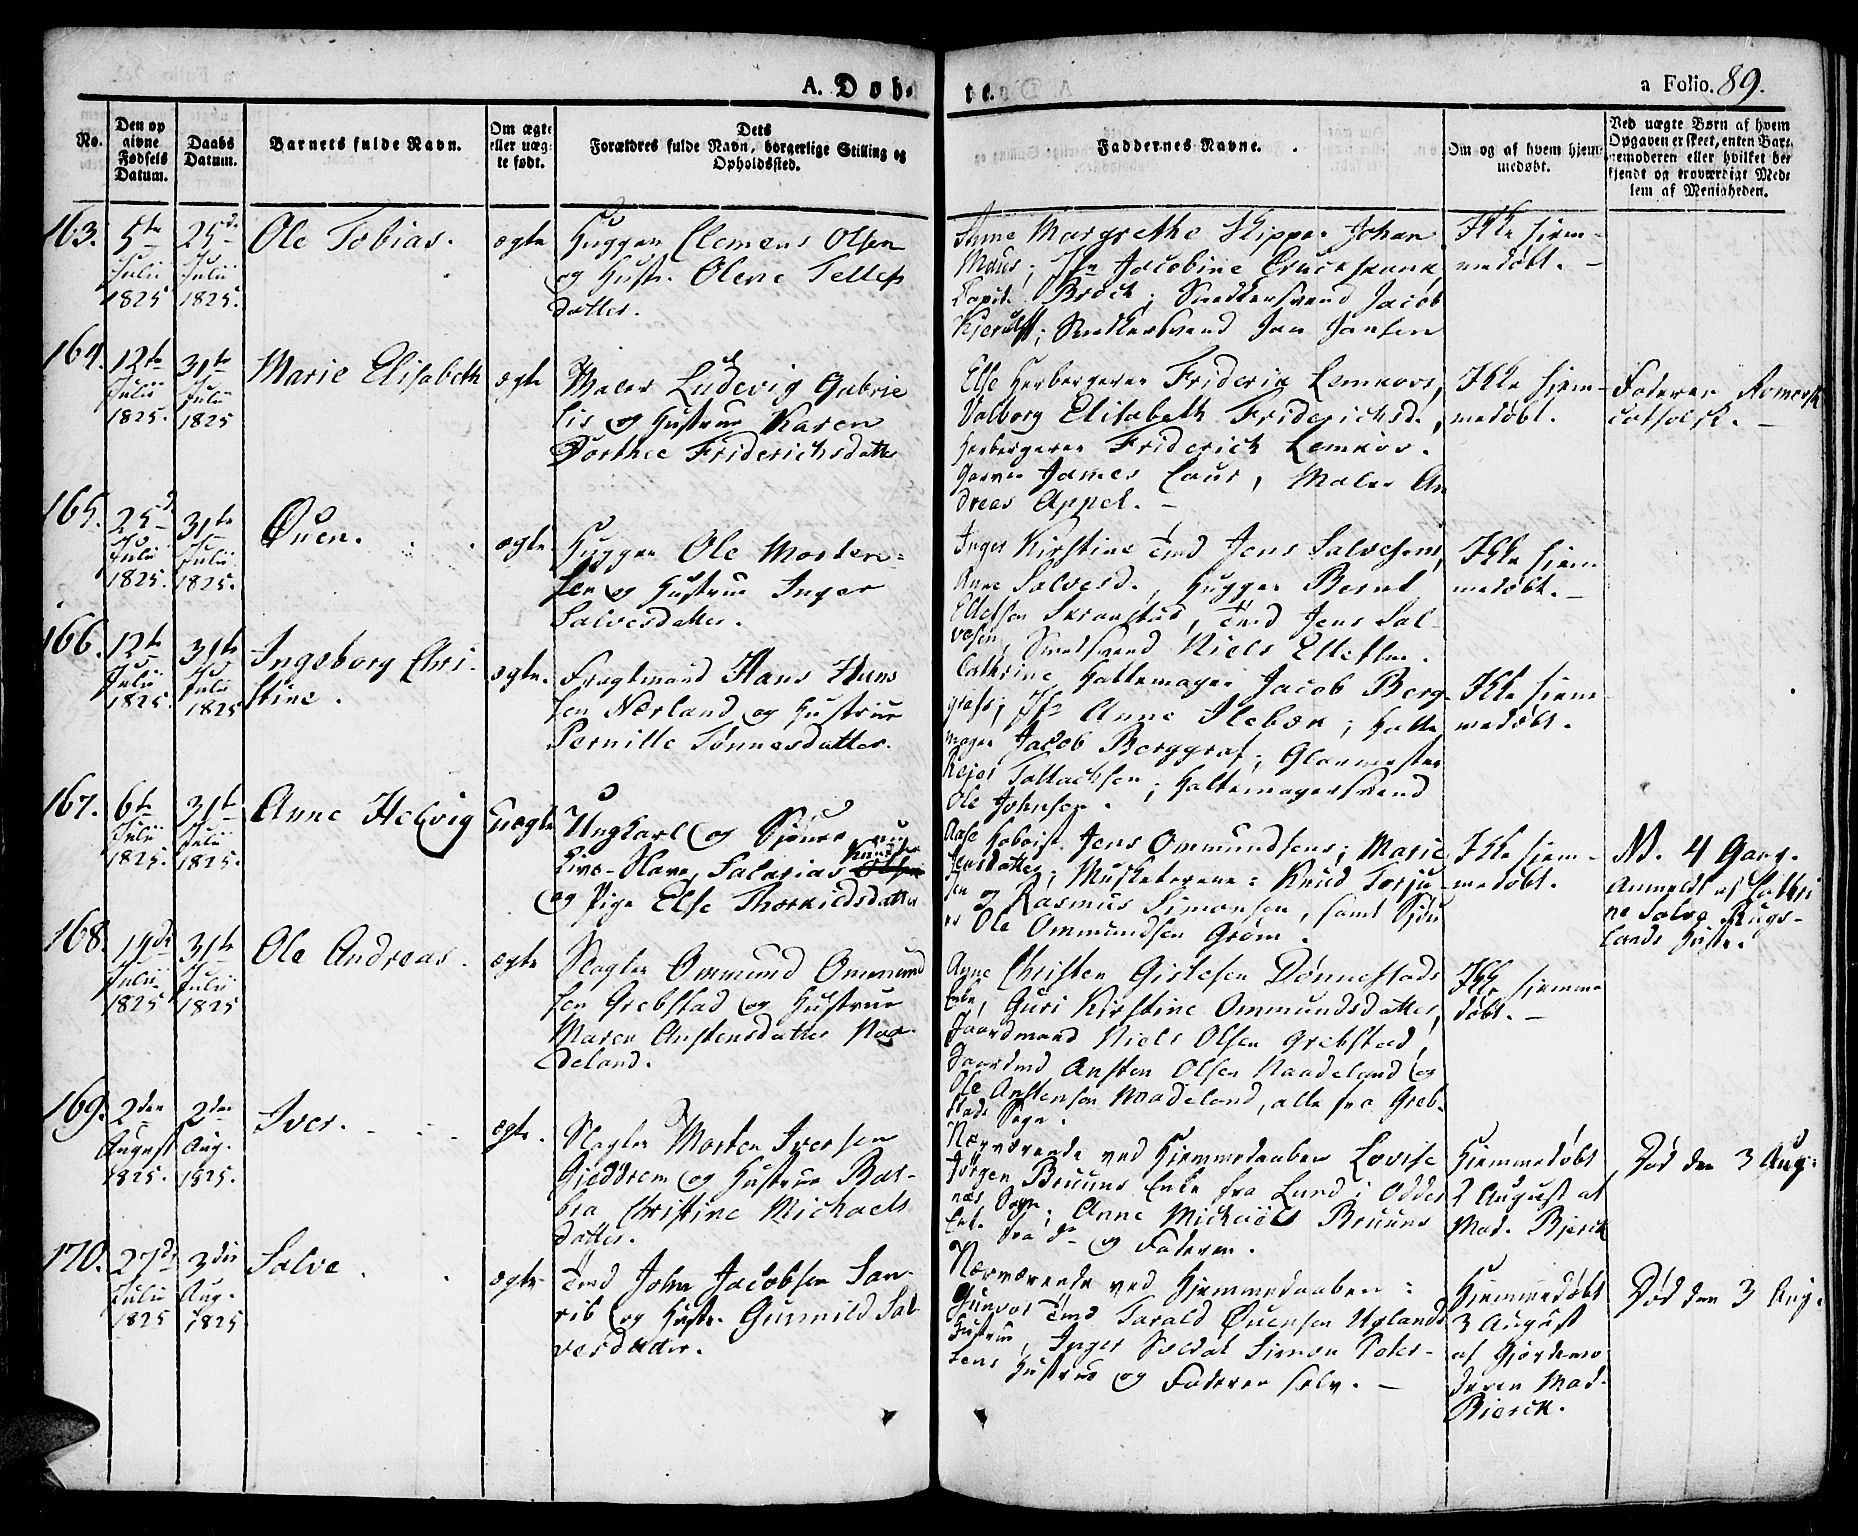 A. Døb-
te.
a Folio. 89.
No.
Den op
givne
Fødsels
Datum.
Daabs
Datum.
Barnets fulde Navn.
Om ægte
eller uæg-
te født.
Dets
Forældres fulde Navn, borgerlige Stilling og
Opholdssted.
Faddernes Navne.
Om og af hvem hjem-
medøbt.
Ved uægte Børn af hvem
Opgaven er skeet, enten Bar-
nemoderen eller hvilket be-
kjendt og troværdigt Med-
lem af Menigheden.
163.
5te
Julii
1825
25de
Julii
1825.
Ole Tobias.
ægte
Hugger Clemens Olsen
og Hustr. Olene Tellefs
datter.
Anne Margrethe Skipper Johan
Maus; Jfr Jacobine
Capit. Brock; Snedkersvend Jacob
Kjerulf; Snedkersvend Jan Jansen
Ikke hjem-
medøbt. –
164.
12te
Julii
1825.
31te
Julii
1825
Marie Elisabeth
ægte
Maler Ludevig Gabrie
lis og Hustrue Karen
Dorthee Friderichsdatter
Else Herbergerer Friderik Lemkovs,
Valborg Elisabeth Friderichsd.,
Herbergerer Friderich Lemkov.
Garver James Caur, Maler An
dreas Appel. –
Ikke hjem-
medøbt.
Faderen Romersk
catholsk. –
165.
25de
Julii
1825.
31te
Julii
1825.
Øuen.
ægte
Hugger Ole Morten-
sen og Hustrue Inger
Salvesdatter.
Inger Kirstine Tmd Jens Salvesens,
Anne Salvesd., Hugger Bernt
Ellefsen, Tmd Jens Sal-
vesen, Smedsvend Niels Ellefsen.
Ikke hjem
medøbt. –
166.
12te
Julii
1825.
31te
Julii
1825
Ingeborg Chri-
stine.
ægte.
Fragtmand Hans Hans
sen Nærland og Hustrue
Pernille Tønnesdatter.
Cathrine Hattemager Jacob Berg-
grafs; Jfr Anne Ilebæk; Hatte
mager Jacob Berggraf; Glarmester
Rejer Tallachsen; Hattemagersvend
Ole Johnsen.
Ikke hjem
medøbt.
167.
6te
Julii
1825.
31te
Julii
1825.
Anne Helvig
Uægte
Ungkarl og
Livs-Slave Salarias Knudsen
og Pige Else Thorkildsdatter
Aase Hoboist Jens Ommundsens; Marie
Jensdatter; Musketererne: Knud Torju
sen og Rasmus Simonsen, samt
Ole Ommundsen Grøm.
Ikke hjem-
medøbt.
N. 4 Gang.
Anmeldt af Cathri
ne Salve Rugs-
lands Hustr.
168.
14de
Julii
1825
31te
Julii
1825
Ole Andreas.
ægte
Slagter Ommund Ommund
sen Grebstad og Hustrue
Maren Anstensdatter Naa-
deland.
Anne Christen Gislesen Dønnestads
Enke, Guri Kirstine Ommundsdatter,
Gaardmand Niels Olsen Grebstad,
Gaardmd Ansten Olsen Naadeland og
Ole Anstensen Naadeland, alle fra Greb-
stads Sogn.
Ikke hjemme
døbt. –
169.
2den
August
1825.
2den
Aug.
1825.
Iver.
ægte.
Slagter Morten Iversen
Gjeddrem og Hustrue Bar-
bra Christine Michaels
datter.
Nærværende ved Hjemmedaaben Lovise
Jørgen Bruuns Enke fra Lund i Odder
næs Sogn; Anne Michaels Bruuns
Enke fra do og Faderen.
Hjemmedøbt
2 August af
Mad. Bjerck
Død den 3 Aug.
170.
27de
Julii
1825
3die
Aug.
1825
Salve
ægte
Tmd John Jacobsen
og Hustr. Gunnild Sal
vesdatter.
Nærværende ved Hjemmedaaben:
Gunvor Tmd Tarald Øuensen Uglands
Hustrue, Inger Soldat Simon Peter-
sens Hustrue og Faderen selv. –
Hjemmedøbt
3 August
af Gjordemo
deren Mad.
Bierck.
Død den 3 Aug.